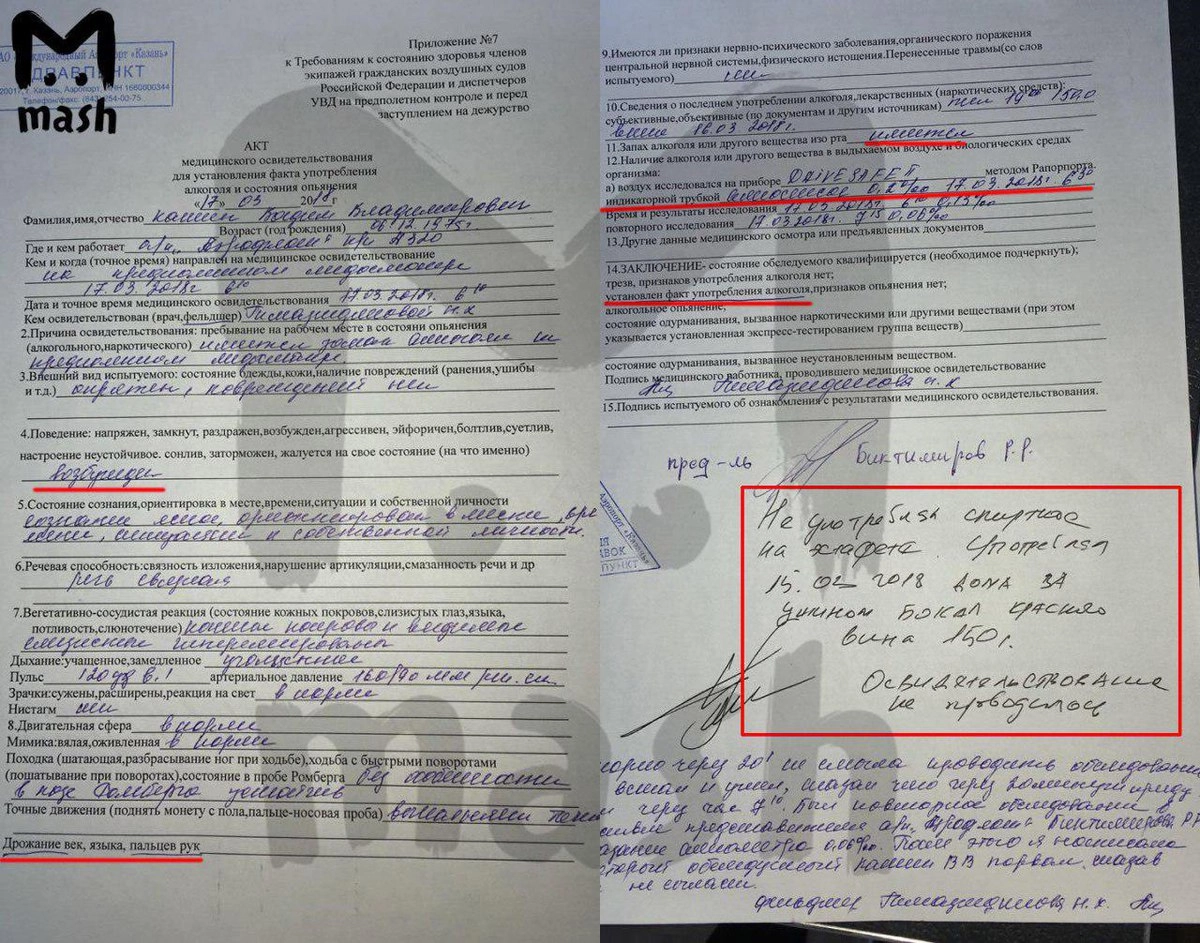 mash
Приложение №7
к Требованиям к состоянию здоровья членов
экипажей гражданских воздушных судов
Российской Федерации и диспетчеров
УВД на предполетном контроле и перед
заступлением на дежурство
АКТ
медицинского освидетельствования
для установления факта употребления
алкоголя и состояния опьянения
«17» 03 2018 г
Фамилия,имя,отчество Владимирович
Возраст (год рождения) 06.12.1975г.
Где и кем работает а/к „Аэрофлот" А320
Кем и когда (точное время) направлен на медицинское освидетельствование
на предполетном медосмотре
17.03.2018г 6 10
Дата и точное время медицинского освидетельствования 17.03.2018г. 6 10
Кем освидетельствован (врач,фельдшер) Н.Х
2.Причина освидетельствования: пребывание на рабочем месте в состояни опьянения
(алкогольного,наркотического) имеется запах алкоголя на
предполетном медосмотре
3.Внешний вид испытуемого: состояние одежды,кожи,наличие повреждений (ранения,ушибы
и т.д.) опрятен, повреждений нет
4.Поведение: напряжен, замкнут, раздражен,возбужден,агрессивен, эйфоричен,болтлив,суетлив,
настроение неустойчивое. сонлив, заторможен, жалуется на свое состояние (на что именно)
возбужден
5.Состояние сознания,ориентировка в месте,времени,ситуации и собственной личности
сознание ясное, ориентирован в месте, вре
мени, ситуации и собственной личности.
6.Речевая способность:связность изложения,нарушение артикуляции,смазанность речи и др
речь связная
7.Вегетативно-сосудистая реакция (состояние кожных покровов,слизистых глаз,языка,
потливость,слюнотечение) кожные покровы и видимые
слизистые гиперемированы
Дыхание:учащенное,замедленное учащенное
Пульс 120 уд в 1' артериальное давление 160/90 мм рт. ст.
Зрачки:сужены,расширены,реакция на свет в норме
Нистагм нет
8.Двигательная сфера в норме
Мимика:вялая,оживленная в норме
Походка (шатающая,разбрасывание ног при ходьбе),ходьба с быстрыми поворотами
(пошатывание при поворотах),состояние в пробе Ромберга без особенностей
в позе Ромберга устойчив
Точные движения (поднять монету с пола,пальце-носовая проба) выполняет
Дрожание век, языка, пальцев рук
9.Имеются ли признаки нервно-психического заболевания,органического поражения
центральной нервной системы,физического истощения.Перенесенные травмы(со слов
испытуемого) нет
10.Сведения о последнем употреблении алкоголя,лекарственных (наркотических средств):
субъективные,объективные (по документам и другим источникам) 19 00 150,0
вина 16.03 2018г.
11.Запах алкоголя или другого вещества изо рта имеется
12.Наличие алкоголя или другого вещества в выдыхаемом воздухе и биологических средах
организма:
а) воздух исследовался на приборе DRIVESAFE II методом Рапопорта.
индикаторной трубкой 17.03.2018г 6 30
Время и результаты исследования 17.03.2018г. 6 10
повторного исследования 17.03.2018г. 7 15 0,06%о
13.Другие данные медицинского осмотра или предъявленных документов
14.ЗАКЛЮЧЕНИЕ- состояние обследуемого квалифицируется (необходимое подчеркнуть);
трезв, признаков употребления алкоголя нет;
установлен факт употребления алкоголя,признаков опьянения нет;
алкогольное опьянение;
состояние одурманивания, вызванное наркотическими или другими веществами (при этом
указывается установленная экспресс-тестированием группа веществ)
состояние одурманивания, вызванное неустановленным веществом.
Подпись медицинского работника, проводившего медицинское освидетельствование
15.Подпись испытуемого об ознакомления с результатами медицинского освидетельствования.
пред-ль Биктимиров Р.Р.
Не употреблял спиртное
на эстафете. Употреблял
15.03 2018 дома за
ужином бокал красного
вина 150г.
Освидетельствование
не проводилось
через 20' не смысла проводить обследование
встал и ушел, сказал что через приду
через час 7 10. Был повторное обследование в
представителя а/к „Аэрофлот" Биктимирова Р.Р
0,06%о. После этого я написала
который обследуемый В.В порвал, сказав
не согласен.
фельдшер Н.Х.
mash